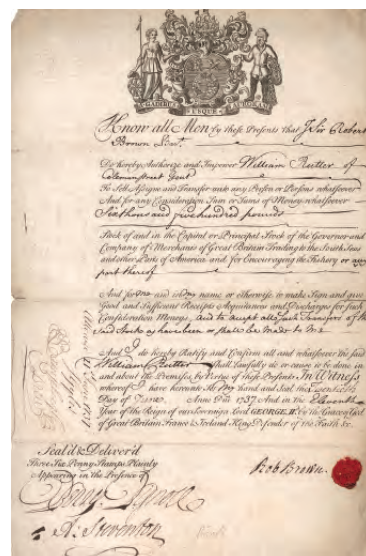 A GADIBUS USQUE AURORAM
Know all Men by these Presents that I Sir Robert
Brown
Do hereby Authorize and Impower William Rutter of
Colemanstreet Gent
To Sell Assign and Transfer unto any Person or Persons whatsoever
And for any Consideration Sum or Sums of Money whatsoever
Six thousand five hundred pounds
Stock of and in the Capital or Principal Stock of the Governor and
Company of Merchants of Great Britain Trading to the South Seas
and other Parts of America and for Encouraging the Fishery or any
part thereof
And for me and in my name or otherwise to make Sign and give
Good and Sufficient Receipts Acquittances and Discharges for such
Consideration Moneys, and to accept all such Transfers of the
said Stocks as have been or shall be made to me
And I do hereby Ratify and Confirm all and whatsoever the said
William Rutter shall Lawfully do or cause to be done in
and about the Premises, by Virtue of these Presents. In Witness
whereof I have hereunto set my hand and Seal the Twentieth
Day of June Anno Dni 1737 And in the Eleventh
Year of the Reign of our Sovereign Lord GEORGE II by the Grace of God
of Great Britain France & Ireland King Defender of the Faith &c.
Seal'd & Deliver'd
Three Six Penny Stamps Plainly
Appearing in the Presence of
Rob Brown
Stevenson